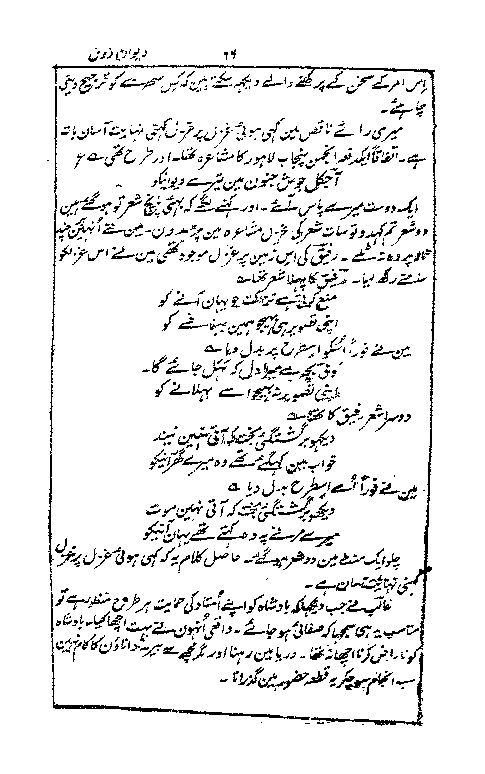 ۶۶ دیوان ذوق
اس امر کے سخن کے پرکھنے والے دیکھہ سکتے ہین کہ کس سہرے کو ترجیح دینی
چاہئے ۔
میری رائے ناقص مین کہی ہوئی غزل پر غزل کہنی نہایت آسان بات
ہے ۔ اتفاقاً ایک دفعہ انجمن پنجاب لاہور کا مشاعرہ تھا ۔ اور طرح تھی ؎
آجکل جوش جنون مین تیرے دیوانیکو
ایک دوست میرے پاس آئے ۔ اور کہنے لگے کہ بھئی پنج شعر تو ہو گئے ہین
دو شعر تم کہدو تو سات شعر کی غزل مشاعرہ مین پڑھدون ۔ مین نے اُنہین
ٹالا پر وہ نہ ٹلے ۔ رفیق کی اس زمین پر غزل موجود تھی مین نے اس غزل کو
سامنے رکھ لیا ۔ رفیق کا پہلا شعر تھا ؎
منع کرتی ہے نزاکت جو یہان آنے کو
اپنی تصویر ہی بھیجو ہمین بہلانے کو
مین نے فوراً اسکو اسطرح پر بدل دیا ؎
کوئی بچہ ہے میرا دل کہ بہل جائے گا ۔
اپنی تصویر نہ بھیجو اسے بہلانے کو
دوسرا شعر رفیق کا تھا ؎
دیکھو برگشتگی بخت کہ آتی نہین نیند
خواب مین کہہ گئے تھے وہ میرے گھر آنیکو
مین نے فوراً اُسے اسطرح بدل دیا ؎
دیکھو برگشتگی بخت کہ آتی نہین موت
میرے مرنے پہ وہ کہتے تھے یہان آنیکو
چلو ایک منٹ مین دو شعر ہو گئے ۔ حاصل کلام یہ کہ کہی ہوئی غزل پر غزل
کہنی نہایت آسان ہے ۔
غالب نے جب دیکھا کہ بادشاہ کو اپنے اُستاد کی حمایت ہر طرح منظور ہے تو
مناسب یہ ہی سمجھا کہ صفائی ہو جائے ۔ واقعی اُنہون نے بہت اچھا کیا ۔ بادشاہ
کو ناراض کرنا اچھا نہ تھا ۔ دریا مین رہنا اور مگر مچھہ سے بیر داناؤن کا کام نہین
سب انجام سوچکر یہ قطعہ حضور مین گذرانا ۔